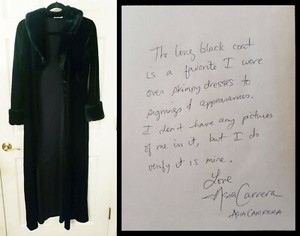 The long black coat
is a favorite I wore
over skimpy dresses to
signings & appearances.
I don't have any pictures
of me in it, but I do
verify it is mine.
Love
Asia Carrera
ASIA CARRERA